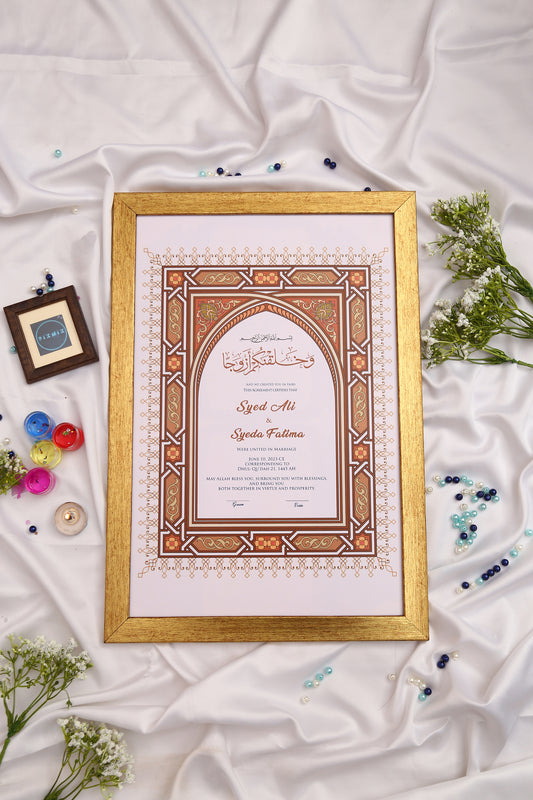 بسم الله الرحمن الرحيم
وَخَلَقْنَكُمْ أَزْوَجًا
And We created you in pairs
This agreement certifies that
Syed Ali
&
Syeda Fatima
Were united in Marriage
June 10, 2023 CE
Corresponding to
Dhul-Qa'dah 21, 1445 AH
May Allah bless you, surround you with blessings,
and bring you
both together in virtue and prosperity.
Groom
Bride